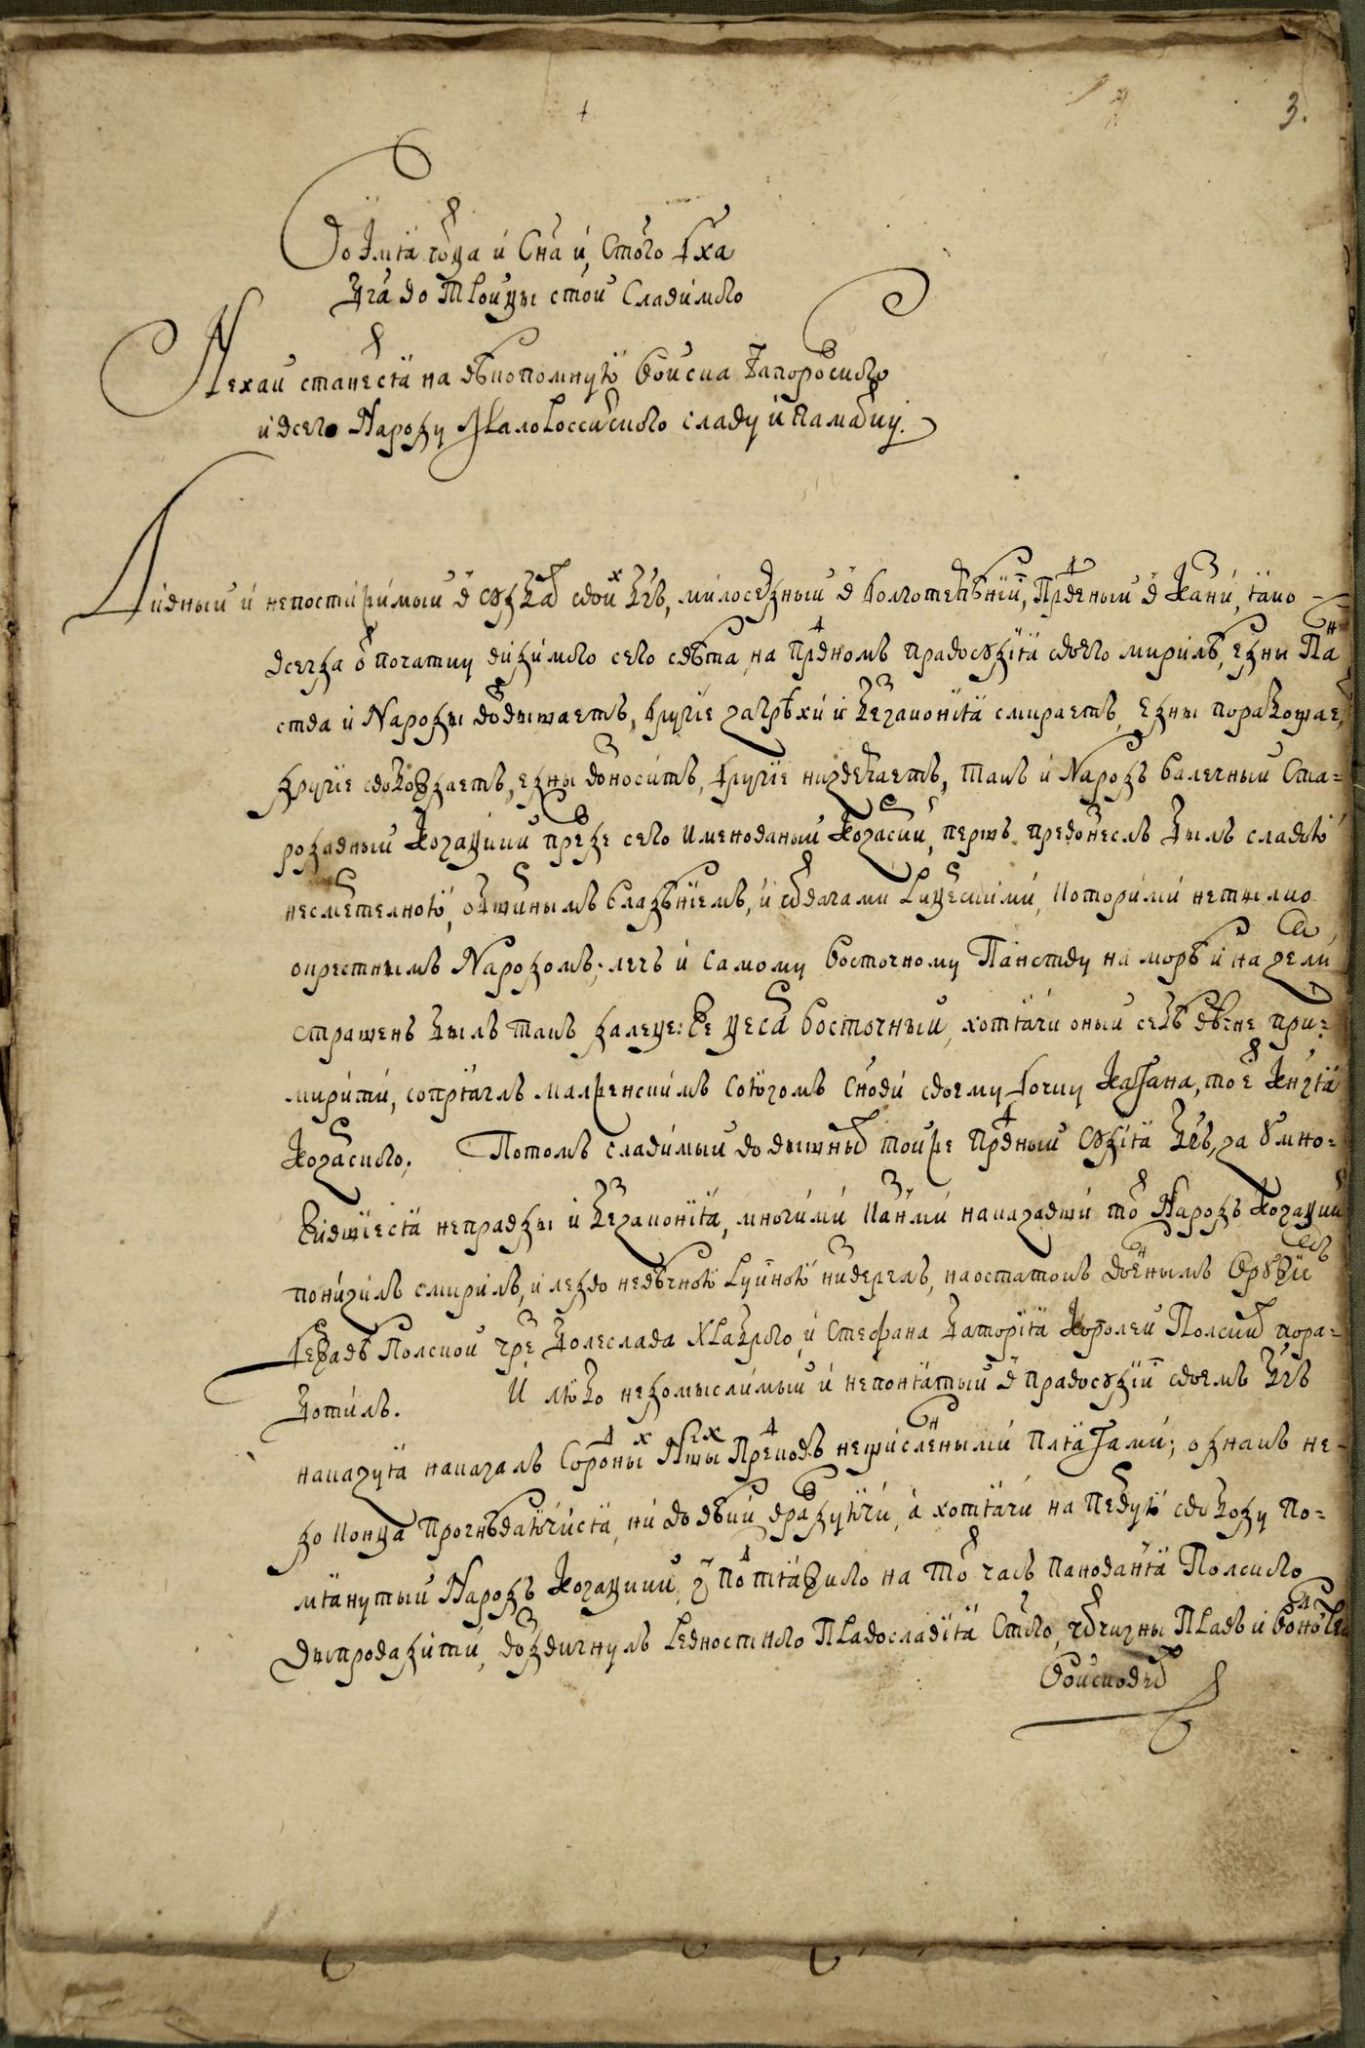 3.
Во Имя Оца и Сна и Стого Дха
Бга во Тройцы стой Славимого
Нехай станется на вѣкопомную Войска Запорозкого
и всего Народу Малороссійского славу и памятку.
Дивный и непостижимый в судбах своих Бгъ, милосердный в долготерпѣніи, Праведный в Казни, яко
всегда от початку видимого сего свѣта, на прведномъ правосудія своего мирилѣ, едны Пан
ства и Народы возвышаетъ, другіе за грѣхи и беззаконія смираетъ, едны порабощает,
другіе свобождаетъ, едны возноситъ, другіе низвергаетъ, такъ и Народъ валечный Ста=
родавный Козацкий прежде сего именованый Козарский, першъ превознеслъ былъ славою
несмертелною, обширнымъ владѣніемъ, и отвагами Рицерскими, которими не тылко
окрестнымъ Народомъ, лечъ и самому Восточному Панству на морѣ и на земли
страшенъ былъ такъ далеце: же Цесар Восточный, хотячи оный себѣ вѣчне при=
мирити, сопряглъ малженскимъ союзомъ Снови своему дочку Кагана, то е Кнзя
Козарского. Потомъ славимый во вышных тойже Прведный Судія Бгъ, за умно=
жившіеся неправды и беззаконія, многими казнми наказавши той Народъ Козацкий
понизилъ смирилъ, и ледво не вѣчною руиною низверглъ, наостатокъ военнымъ оружіем
державѣ Полской чрез Болеслава Храброго и Стефана Баторія Королей Полских пора=
ботилъ. И любо недомыслимый и непонятый в правосудіи своемъ Бгъ
наказуя наказалъ Продков нашых нещислеными плягами; однакъ не
до конца прогнѣваючися, ни во вѣки враждуючи, а хотячи на первую свободу по=
мянутый Народъ Козацкий, з подтяжкого на той часъ панованя Полского
выпровадити, воздвигнулъ ревностного Православія Стого, отчизны правъ и волностей
Войсковых